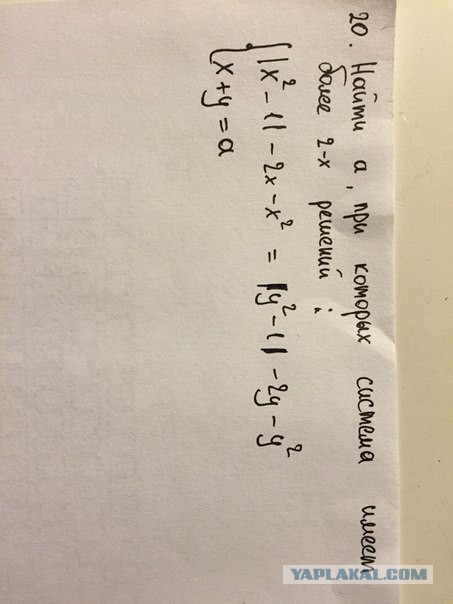 20. Найти а, при которых система имеет
более 2-х решений:
{ |x² - 1| - 2x - x² = |y² - 1| - 2y - y²
x + y = a
YAPLAKAL.COM